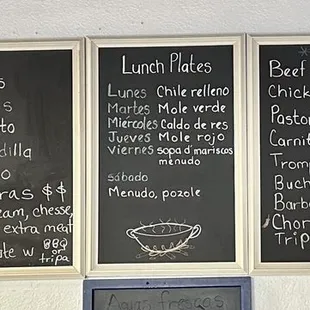 s
s
to
dilla
o
ras $$
eam, chesse,
extra meat
te w/ BBQ
or
tripa
Lunch Plates
Lunes Chile relleno
Martes Mole verde
Miércoles Caldo de res
Jueves Mole rojo
Viernes sopa d' mariscos
menudo
sábado
Menudo, pozole
Beef
Chick
Pastor
Carnit
Tromp
Buch
Barb
Chor
Trip
Aguas frescas